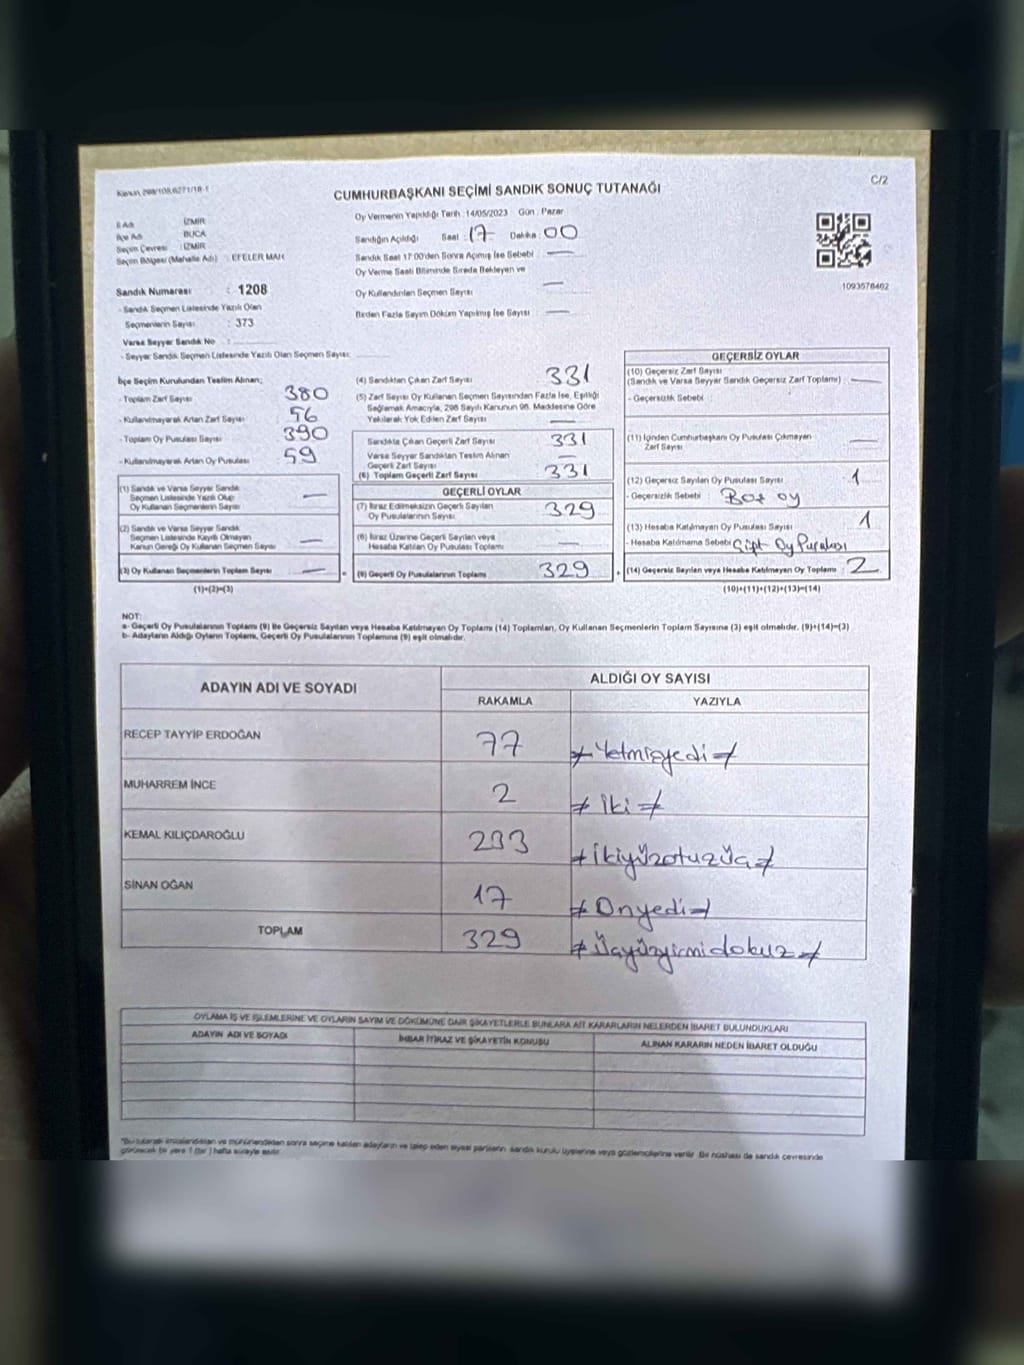 Kanun 298/108,6271/18-1
C/2
CUMHURBAŞKANI SEÇİMİ SANDIK SONUÇ TUTANAĞI
İl Adı : İZMİR
İlçe Adı : BUCA
Seçim Çevresi : İZMİR
Seçim Bölgesi (Mahalle Adı) : EFELER MAH.
Sandık Numarası : 1208
- Sandık Seçmen Listesinde Yazılı Olan
Seçmenlerin Sayısı : 373
Varsa Seyyar Sandık No :
- Seyyar Sandık Seçmen Listesinde Yazılı Olan Seçmen Sayısı:
Oy Vermenin Yapıldığı Tarih : 14/05/2023 Gün : Pazar
Sandığın Açıldığı Saat : 17 Dakika : 00
Sandık Saat 17:00'den Sonra Açılmış İse Sebebi : —
Oy Verme Saati Bitiminde Sırada Bekleyen ve
Oy Kullandırılan Seçmen Sayısı —
Birden Fazla Sayım Döküm Yapılmış İse Sayısı : —
1093578462
İlçe Seçim Kurulundan Teslim Alınan;
- Toplam Zarf Sayısı : 380
- Kullanılmayarak Artan Zarf Sayısı : 56
- Toplam Oy Pusulası Sayısı : 390
- Kullanılmayarak Artan Oy Pusulası : 59
(1) Sandık ve Varsa Seyyar Sandık
Seçmen Listesinde Yazılı Olup
Oy Kullanan Seçmenlerin Sayısı : —
(2) Sandık ve Varsa Seyyar Sandık
Seçmen Listesinde Kayıtlı Olmayan
Kanun Gereği Oy Kullanan Seçmen Sayısı : —
(3) Oy Kullanan Seçmenlerin Toplam Sayısı : —
(1)+(2)=(3)
(4) Sandıktan Çıkan Zarf Sayısı : 331
(5) Zarf Sayısı Oy Kullanan Seçmen Sayısından Fazla İse, Eşitliği
Sağlamak Amacıyla, 298 Sayılı Kanunun 98. Maddesine Göre
Yakılarak Yok Edilen Zarf Sayısı : —
Sandıkta Çıkan Geçerli Zarf Sayısı : 331
Varsa Seyyar Sandıktan Teslim Alınan
Geçerli Zarf Sayısı : —
(6) Toplam Geçerli Zarf Sayısı : 331
GEÇERLİ OYLAR
(7) İtiraz Edilmeksizin Geçerli Sayılan
Oy Pusulalarının Sayısı : 329
(8) İtiraz Üzerine Geçerli Sayılan veya
Hesaba Katılan Oy Pusulası Toplamı : —
(9) Geçerli Oy Pusulalarının Toplamı : 329
GEÇERSİZ OYLAR
(10) Geçersiz Zarf Sayısı
(Sandık ve Varsa Seyyar Sandık Geçersiz Zarf Toplamı) : —
- Geçersizlik Sebebi :
(11) İçinden Cumhurbaşkanı Oy Pusulası Çıkmayan
Zarf Sayısı : —
(12) Geçersiz Sayılan Oy Pusulası Sayısı : 1
- Geçersizlik Sebebi : Boş oy
(13) Hesaba Katılmayan Oy Pusulası Sayısı : 1
- Hesaba Katılmama Sebebi : Çift Oy Pusulası
(14) Geçersiz Sayılan veya Hesaba Katılmayan Oy Toplamı : 2
(10)+(11)+(12)+(13)=(14)
NOT:
a- Geçerli Oy Pusulalarının Toplamı (9) ile Geçersiz Sayılan veya Hesaba Katılmayan Oy Toplamı (14) Toplamları, Oy Kullanan Seçmenlerin Toplam Sayısına (3) eşit olmalıdır. (9)+(14)=(3)
b- Adayların Aldığı Oyların Toplamı, Geçerli Oy Pusulalarının Toplamına (9) eşit olmalıdır.
ADAYIN ADI VE SOYADI
ALDIĞI OY SAYISI
RAKAMLA YAZIYLA
RECEP TAYYİP ERDOĞAN 77 ≠Yetmişyedi≠
MUHARREM İNCE 2 ≠İki≠
KEMAL KILIÇDAROĞLU 233 ≠İkiyüzotuzüç≠
SİNAN OĞAN 17 ≠Onyedi≠
TOPLAM 329 ≠Üçyüzyirmidokuz≠
OYLAMA İŞ VE İŞLEMLERİNE VE OYLARIN SAYIM VE DÖKÜMÜNE DAİR ŞİKAYETLERLE BUNLARA AİT KARARLARIN NELERDEN İBARET BULUNDUKLARI
ADAYIN ADI VE SOYADI İHBAR İTİRAZ VE ŞİKAYETİN KONUSU ALINAN KARARIN NEDEN İBARET OLDUĞU
"Bu tutanak imzalandıktan ve mühürlendikten sonra seçime katılan adayların ve talep eden siyasi partilerin sandık kurulu üyelerine veya gözlemcilerine verilir. Bir nüshası da sandık çevresinde
görülecek bir yere 1 (bir) hafta süreyle asılır.